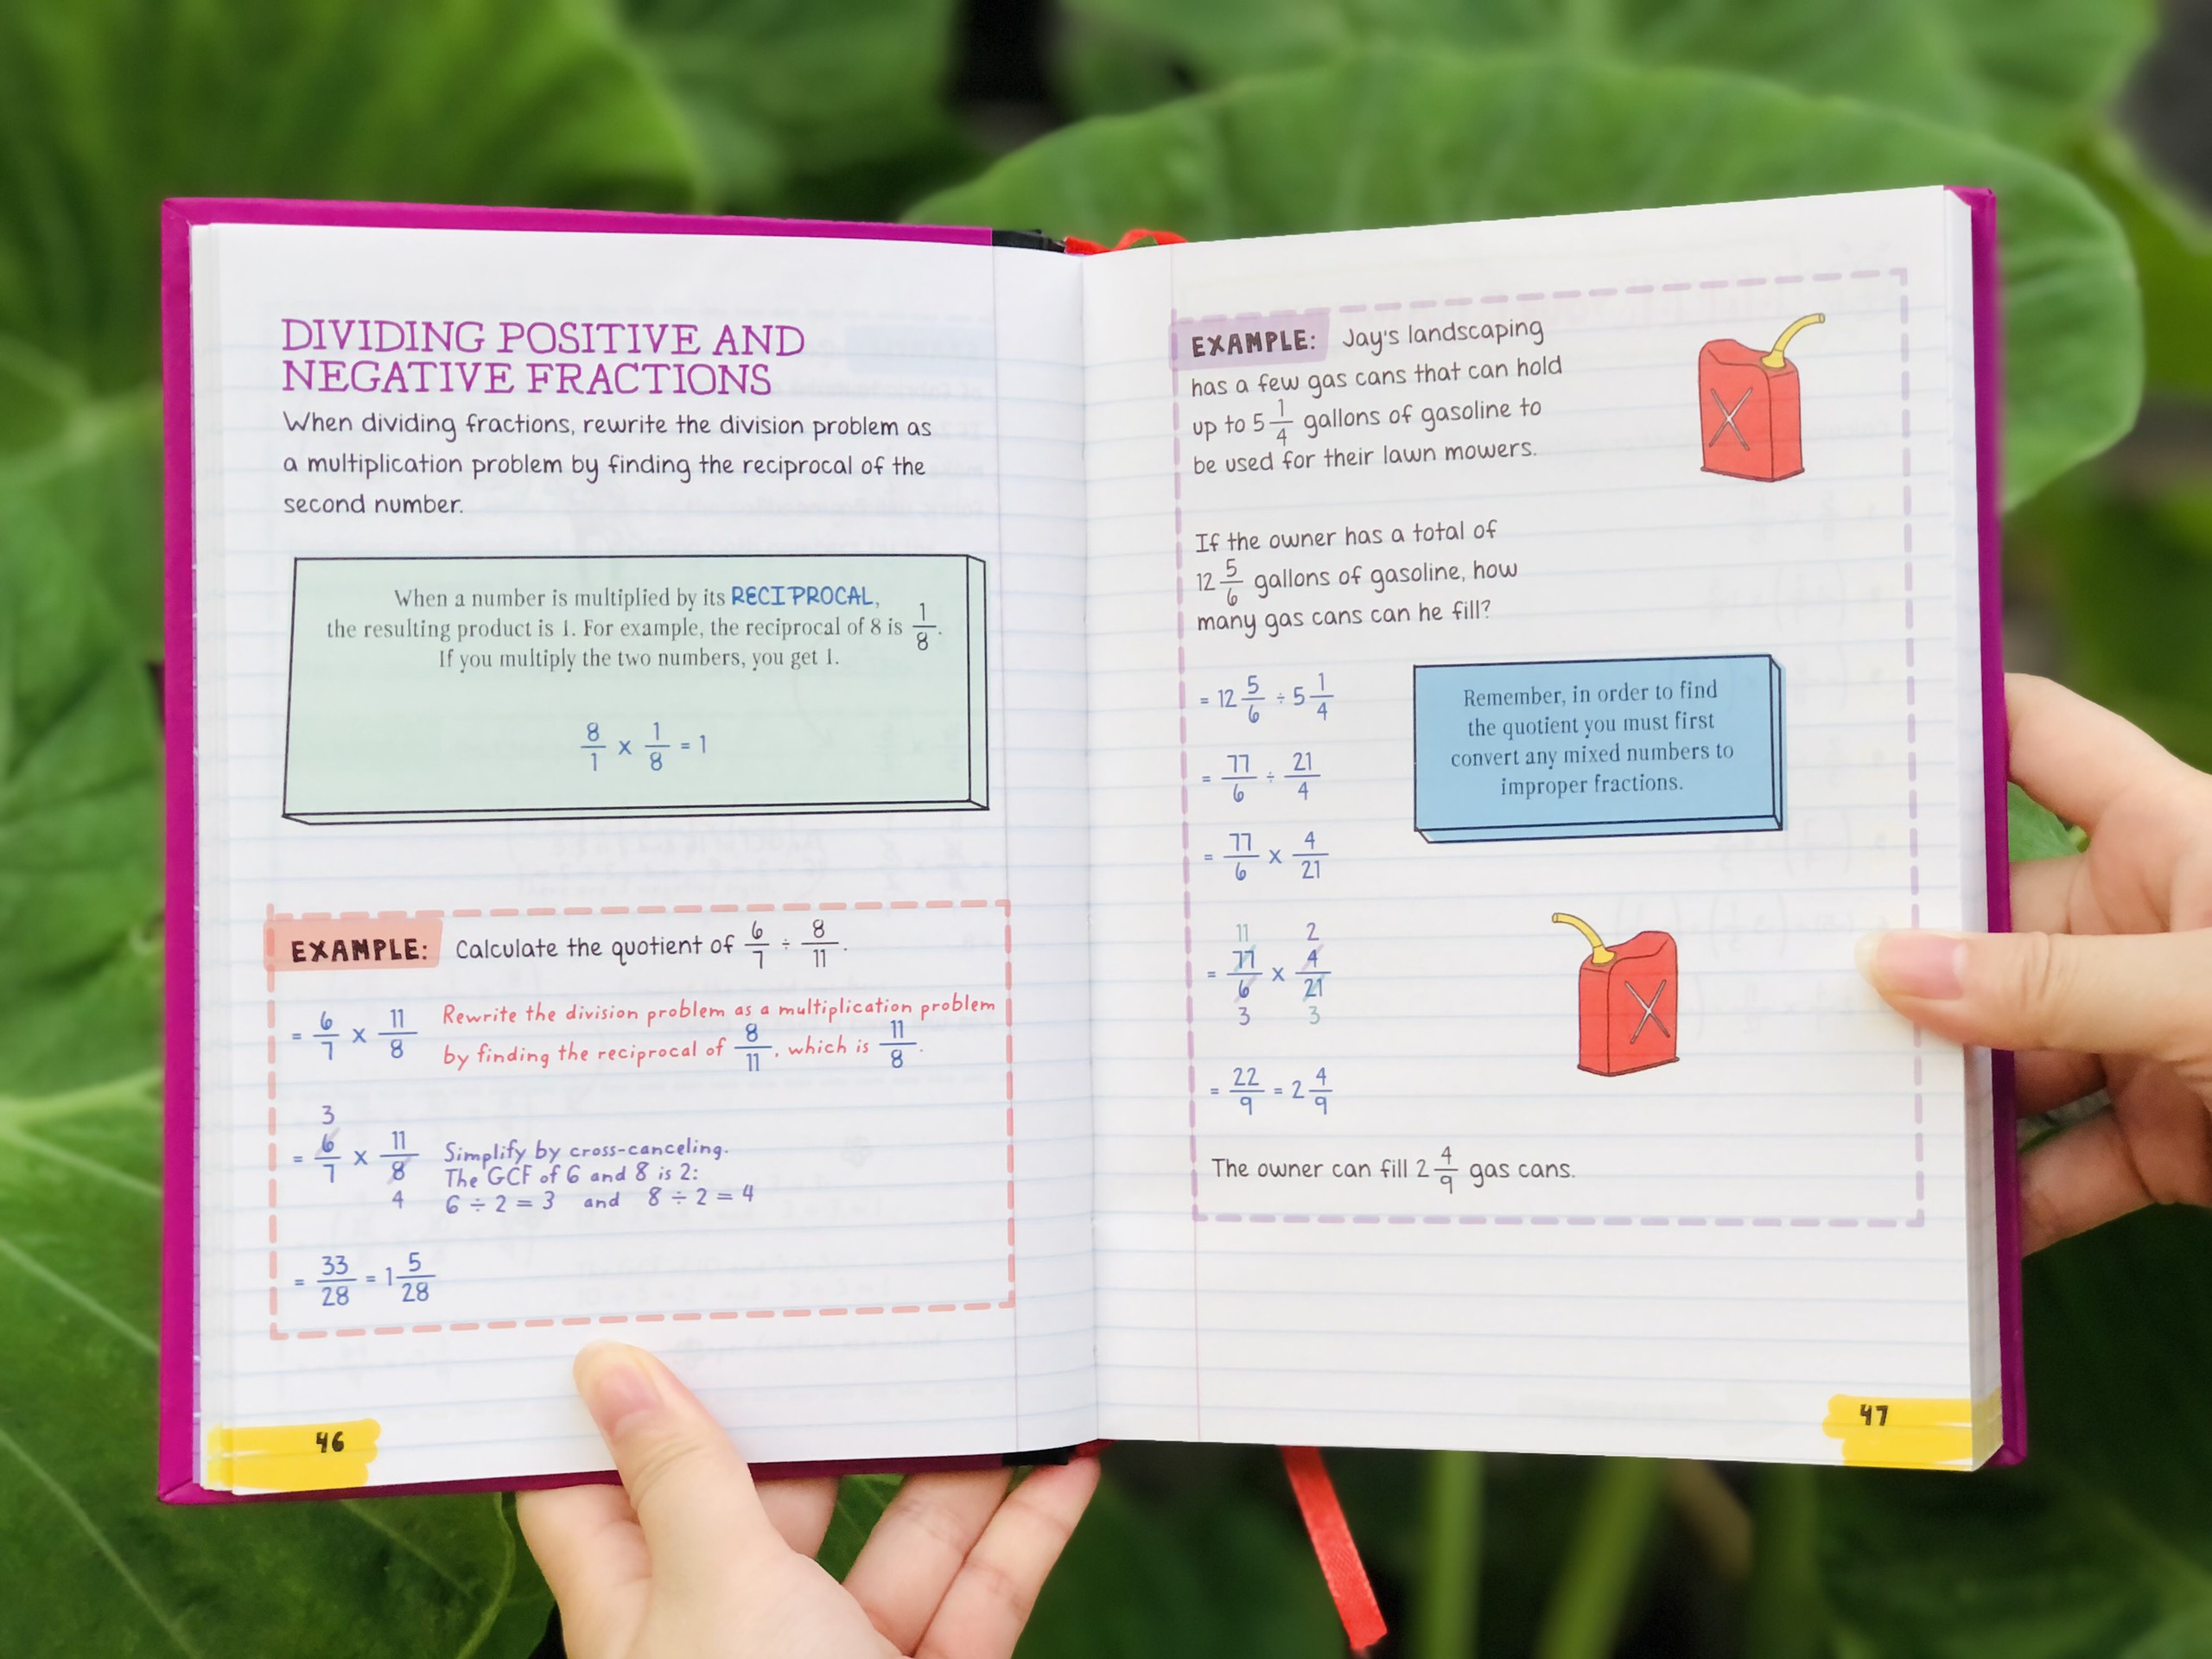 DIVIDING POSITIVE AND
NEGATIVE FRACTIONS
When dividing fractions, rewrite the division problem as
a multiplication problem by finding the reciprocal of the
second number.
When a number is multiplied by its RECIPROCAL,
the resulting product is 1. For example, the reciprocal of 8 is 1/8.
If you multiply the two numbers, you get 1.
8/1 x 1/8 = 1
EXAMPLE: Calculate the quotient of 6/7 ÷ 8/11.
= 6/7 x 11/8
Rewrite the division problem as a multiplication problem
by finding the reciprocal of 8/11, which is 11/8.
3
= 6/7 x 11/8
4
Simplify by cross-canceling.
The GCF of 6 and 8 is 2:
6 ÷ 2 = 3 and 8 ÷ 2 = 4
= 33/28 = 1 5/28
46
EXAMPLE: Jay's landscaping
has a few gas cans that can hold
up to 5 1/4 gallons of gasoline to
be used for their lawn mowers.
If the owner has a total of
12 5/6 gallons of gasoline, how
many gas cans can he fill?
= 12 5/6 ÷ 5 1/4
= 77/6 ÷ 21/4
= 77/6 x 4/21
Remember, in order to find
the quotient you must first
convert any mixed numbers to
improper fractions.
11 2
= 77/6 x 4/21
3 3
= 22/9 = 2 4/9
The owner can fill 2 4/9 gas cans.
47